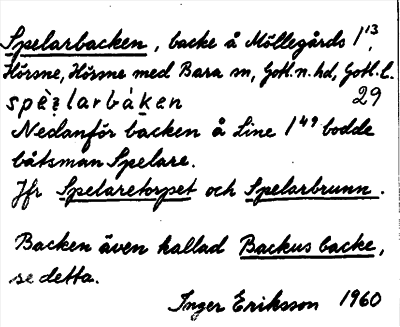 Spelarbacken, backe å Möllegårds 1¹³,
Hörsne, Hörsne med Bara sn, Gotl. n. hd, Gotl. l.
spèʒlarbàken 29
Nedanför backen å Line 1⁴⁹ bodde
båtsman Spelare.
Jfr Spelaretorpet och Spelarbrunn.
Backen även kallad Backus backe,
se detta.
Inger Eriksson 1960